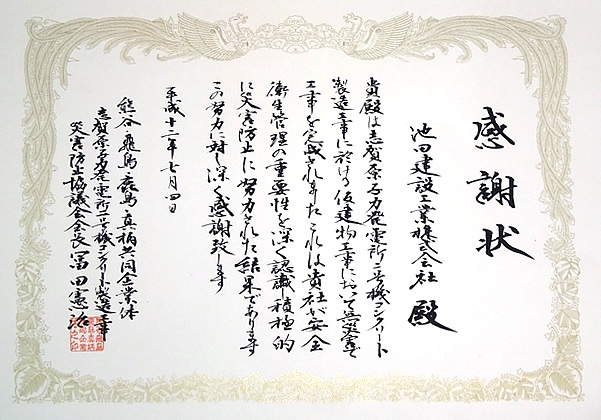 感謝状
池田建設工業株式会社 殿
貴殿は志賀原子力発電所二号機コンクリート
製造工事に於ける仮建物工事において無災害で
工事を完成されましたこれは貴社が安全
衛生管理の重要性を深く認識し積極的
に災害防止に努力された結果であります
この努力に対し深く感謝致します
平成十二年七月四日
熊谷・飛島・鹿島・真柄共同企業体
志賀原子力発電所二号機コンクリート製造工事
災害防止協議会会長 冨田憲治